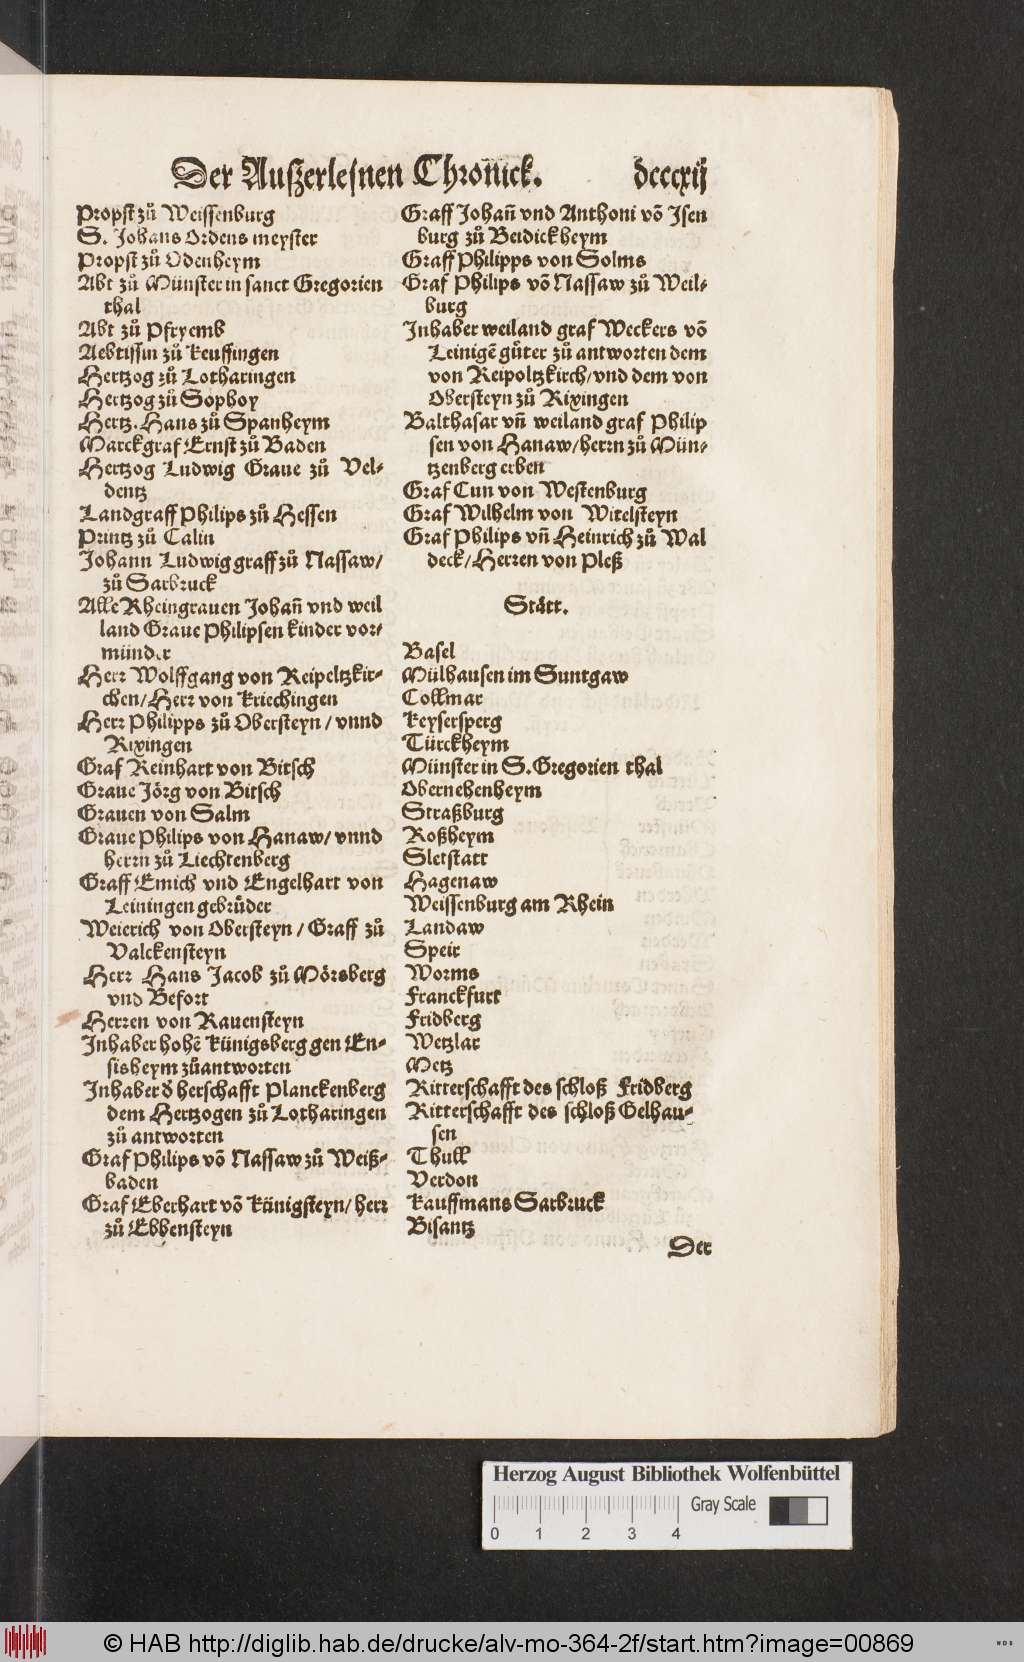 Der Außerlesnen Chronick. dcccxij
Propst zů Weissenburg
S. Johans Ordens meyster
Propst zů Odenheym
Abt zů Münster in sanct Gregorien
thal
Abt zů Pfryemb
Aebtissin zů Keuffingen
Hertzog zů Lotharingen
Hertzog zů Sophoy
Hertz. Hans zů Spanheym
Marckgraf Ernst zů Baden
Hertzog Ludwig Graue zů Vel-
dentz
Landgraff Philips zů Hessen
Printz zů Calin
Johann Ludwig graff zů Nassaw/
zů Sarbruck
Alle Rheingrauen Johañ vnd weil
land Graue Philipsen kinder vor-
münder
Herr Wolffgang von Reipeltzkir-
chen/ Herr von Kriechingen
Herr Philipps zů Obersteyn/ vnnd
Rixingen
Graf Reinhart von Bitsch
Graue Jörg von Bitsch
Grauen von Salm
Graue Philips von Hanaw/ vnnd
herrn zů Liechtenberg
Graff Emich vnd Engelhart von
Leiningen gebrůder
Weierich von Obersteyn/ Graff zů
Valckensteyn
Herr Hans Jacob zů Mörsberg
vnd Befort
Herren von Rauensteyn
Inhaber hohẽ Künigsberg gen En-
sisheym zůantworten
Inhaber đ herschafft Planckenberg
dem Hertzogen zů Lotharingen
zů antworten
Graf Philips võ Nassaw zů Weiß-
baden
Graf Eberhart võ Künigsteyn/ herr
zů Ebbensteyn
Graff Johañ vnd Anthoni võ Isen
burg zů Beidickheym
Graff Philipps von Solms
Graf Philips võ Nassaw zů Weil-
burg
Inhaber weiland graf Weckers võ
Leinigẽ gůter zů antworten dem
von Reipoltzkirch/ vnd dem von
Obersteyn zů Rixingen
Balthasar vñ weiland graf Philip
sen von Hanaw/ herrn zů Mün-
tzenberg erben
Graf Cun von Westenburg
Graf Wilhelm von Witelsteyn
Graf Philips vñ Heinrich zů Wal
deck/ Herren von Pleß
Stått.
Basel
Mülhausen im Suntgaw
Collmar
Keysersperg
Türckheym
Münster in S. Gregorien thal
Obernehenheym
Straßburg
Roßheym
Sletstatt
Hagenaw
Weissenburg am Rhein
Landaw
Speir
Worms
Franckfurt
Fridberg
Wetzlar
Metz
Ritterschafft des schloß Fridberg
Ritterschafft des schloß Gelhau-
sen
Thull
Verdon
Kauffmans Sarbruck
Bisantz
Der
Herzog August Bibliothek Wolfenbüttel
Gray Scale
0 1 2 3 4
© HAB http://diglib.hab.de/drucke/alv-mo-364-2f/start.htm?image=00869